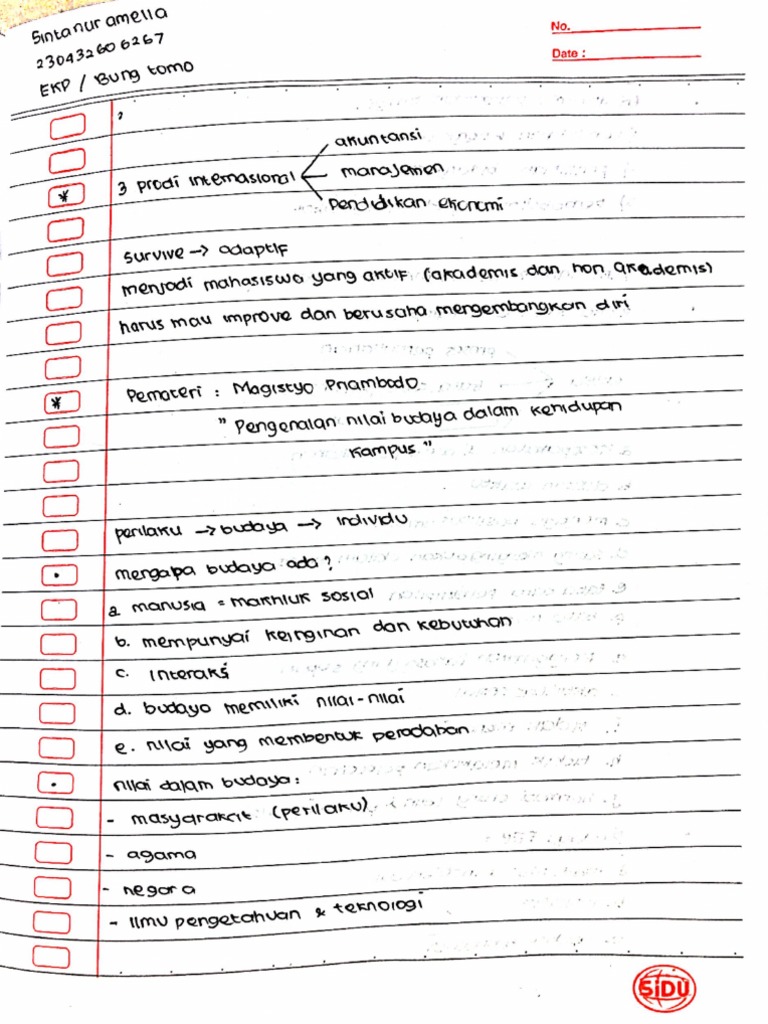 Sintanur amelia
230432606267
EKP / Bung tomo
No.
Date :
akuntansi
* 3 prodi internasional manajemen
Pendidikan ekonomi
survive → adaptif
menjadi mahasiswa yang aktif (akademis dan non akademis)
harus mau improve dan berusaha mengembangkan diri
* Pemateri : Magistyo Pnambodo
" Pengenalan nilai budaya dalam kehidupan
kampus "
perilaku → budaya → individu
• mengapa budaya ada ?
a. manusia = makhluk sosial
b. mempunyai keinginan dan kebutuhan
c. interaksi
d. budaya memiliki nilai-nilai
e. nilai yang membentuk peradaban
• nilai dalam budaya :
- masyarakat (perilaku)
- agama
- negara
- ilmu pengetahuan & teknologi
SiDU